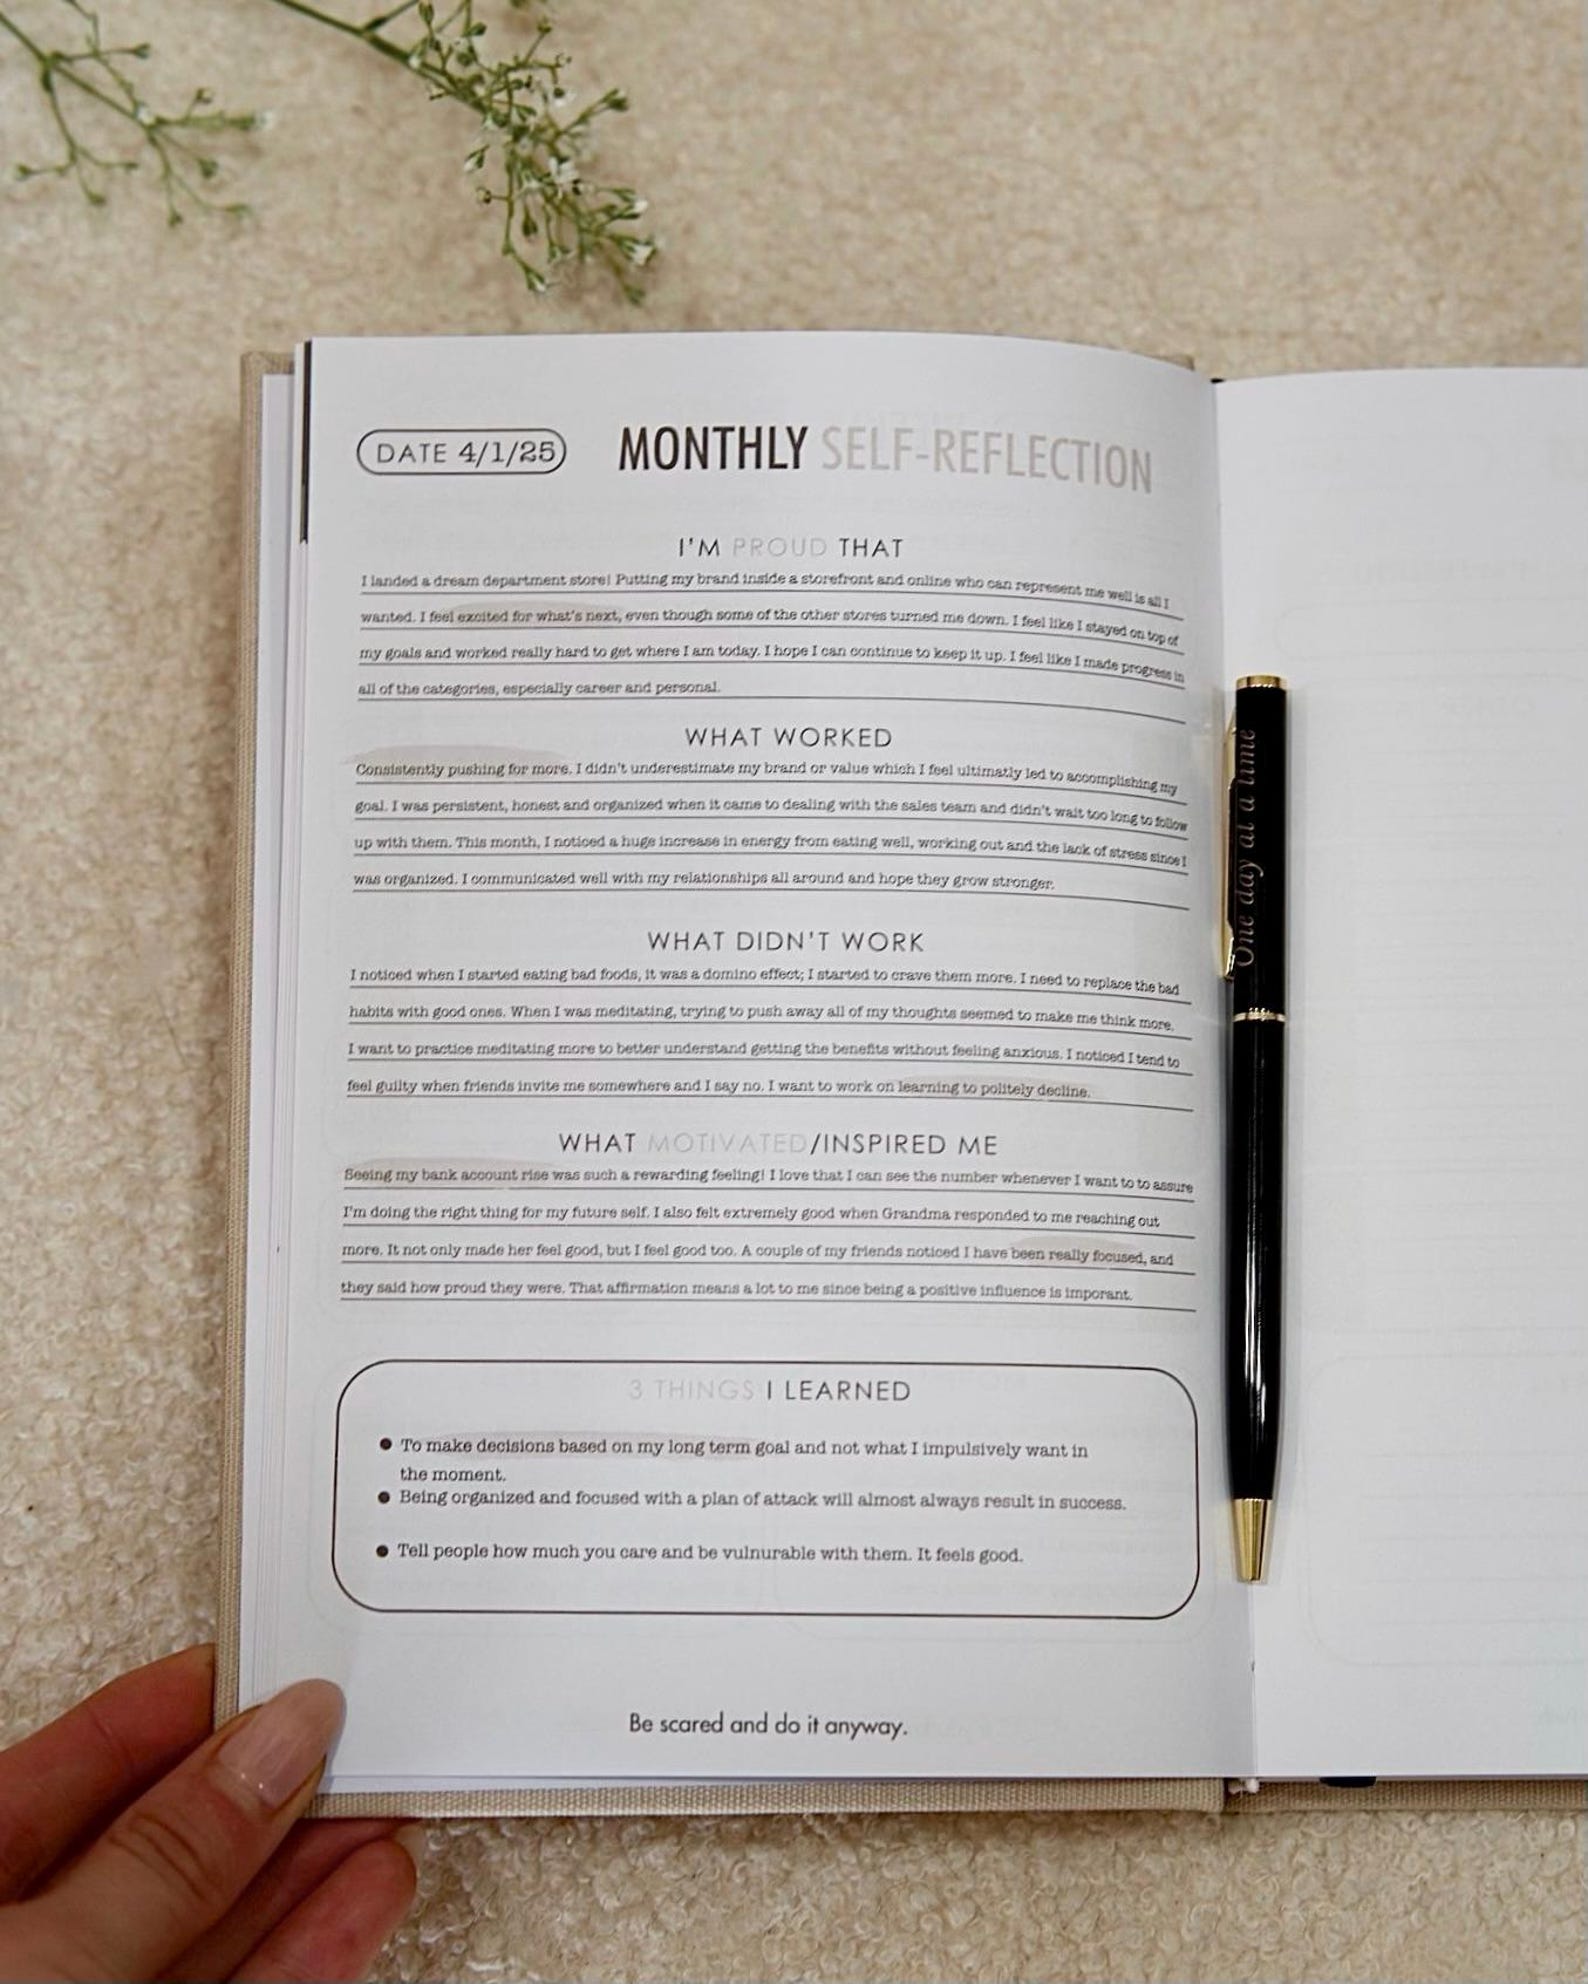 DATE 4/1/25
MONTHLY SELF-REFLECTION
I'M PROUD THAT
I landed a dream department store! Putting my brand inside a storefront and online who can represent me well is all I
wanted. I feel excited for what's next, even though some of the other stores turned me down. I feel like I stayed on top of
my goals and worked really hard to get where I am today. I hope I can continue to keep it up. I feel like I made progress in
all of the categories, especially career and personal.
WHAT WORKED
Consistently pushing for more. I didn't underestimate my brand or value which I feel ultimatly led to accomplishing my
goal. I was persistent, honest and organized when it came to dealing with the sales team and didn't wait too long to follow
up with them. This month, I noticed a huge increase in energy from eating well, working out and the lack of stress since I
was organized. I communicated well with my relationships all around and hope they grow stronger.
WHAT DIDN'T WORK
I noticed when I started eating bad foods, it was a domino effect; I started to crave them more. I need to replace the bad
habits with good ones. When I was meditating, trying to push away all of my thoughts seemed to make me think more.
I want to practice meditating more to better understand getting the benefits without feeling anxious. I noticed I tend to
feel guilty when friends invite me somewhere and I say no. I want to work on learning to politely decline.
WHAT MOTIVATED/INSPIRED ME
Seeing my bank account rise was such a rewarding feeling! I love that I can see the number whenever I want to to assure
I'm doing the right thing for my future self. I also felt extremely good when Grandma responded to me reaching out
more. It not only made her feel good, but I feel good too. A couple of my friends noticed I have been really focused, and
they said how proud they were. That affirmation means a lot to me since being a positive influence is imporant.
3 THINGS I LEARNED
● To make decisions based on my long term goal and not what I impulsively want in
the moment.
● Being organized and focused with a plan of attack will almost always result in success.
● Tell people how much you care and be vulnurable with them. It feels good.
Be scared and do it anyway.
One day at a time